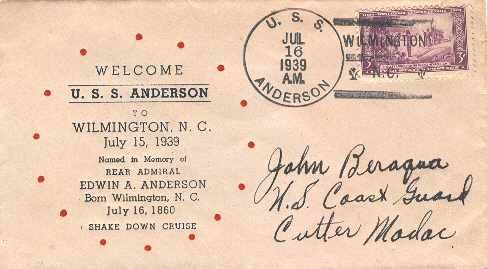 WELCOME
U. S. S. ANDERSON
TO
WILMINGTON, N. C.
July 15, 1939
Named in Memory of
REAR ADMIRAL
EDWIN A. ANDERSON
Born Wilmington, N. C.
July 16, 1860
SHAKE DOWN CRUISE
U. S. S.
JUL
16
1939
A.M.
ANDERSON
WILMINGTON
N.C.
3
3
John Beragua
U.S. Coast Guard
Cutter Modoc